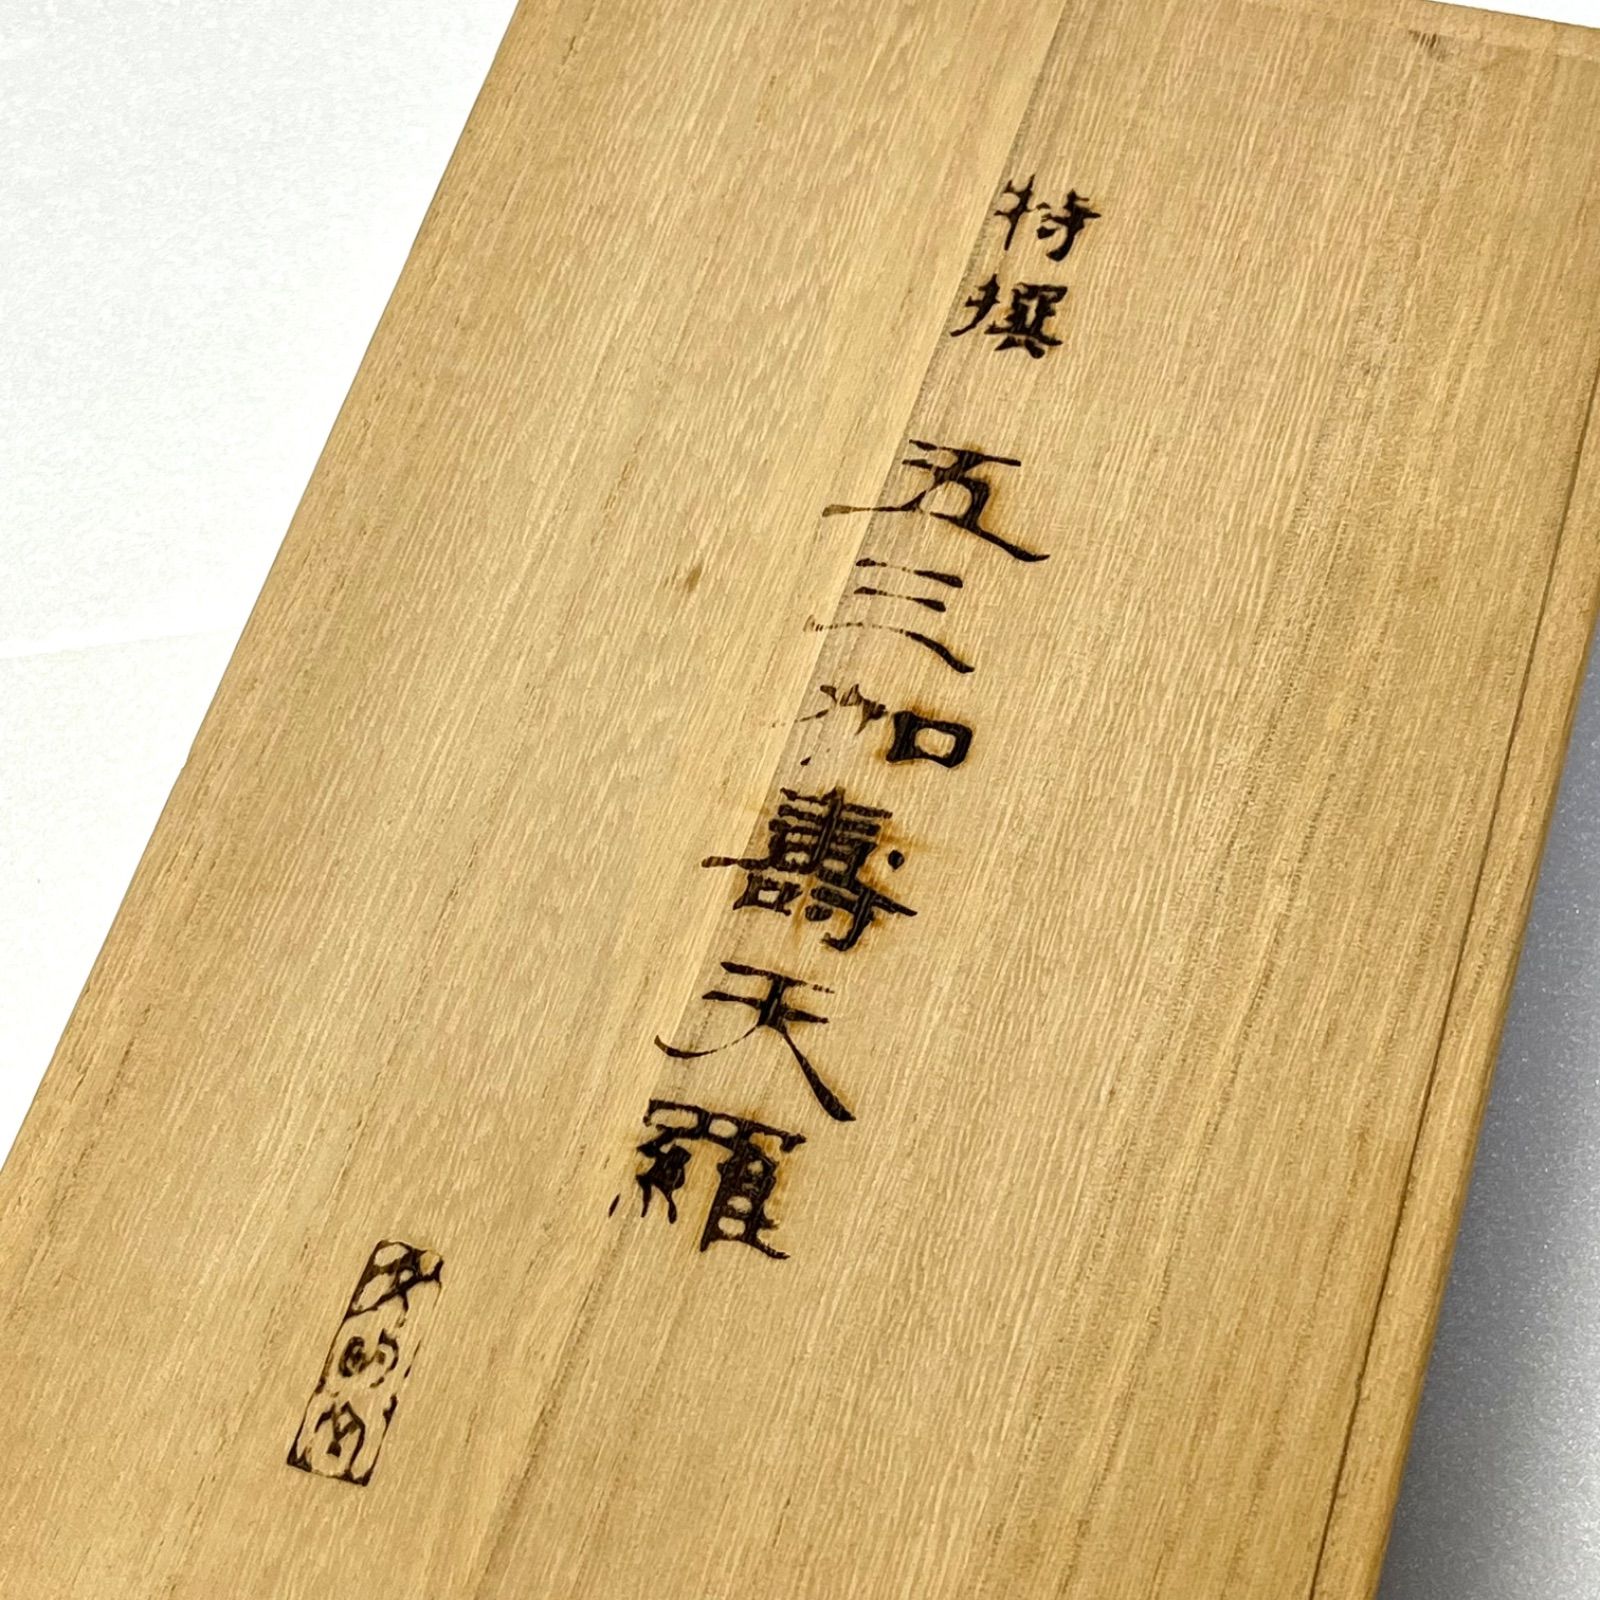 特撰 五三加壽天羅